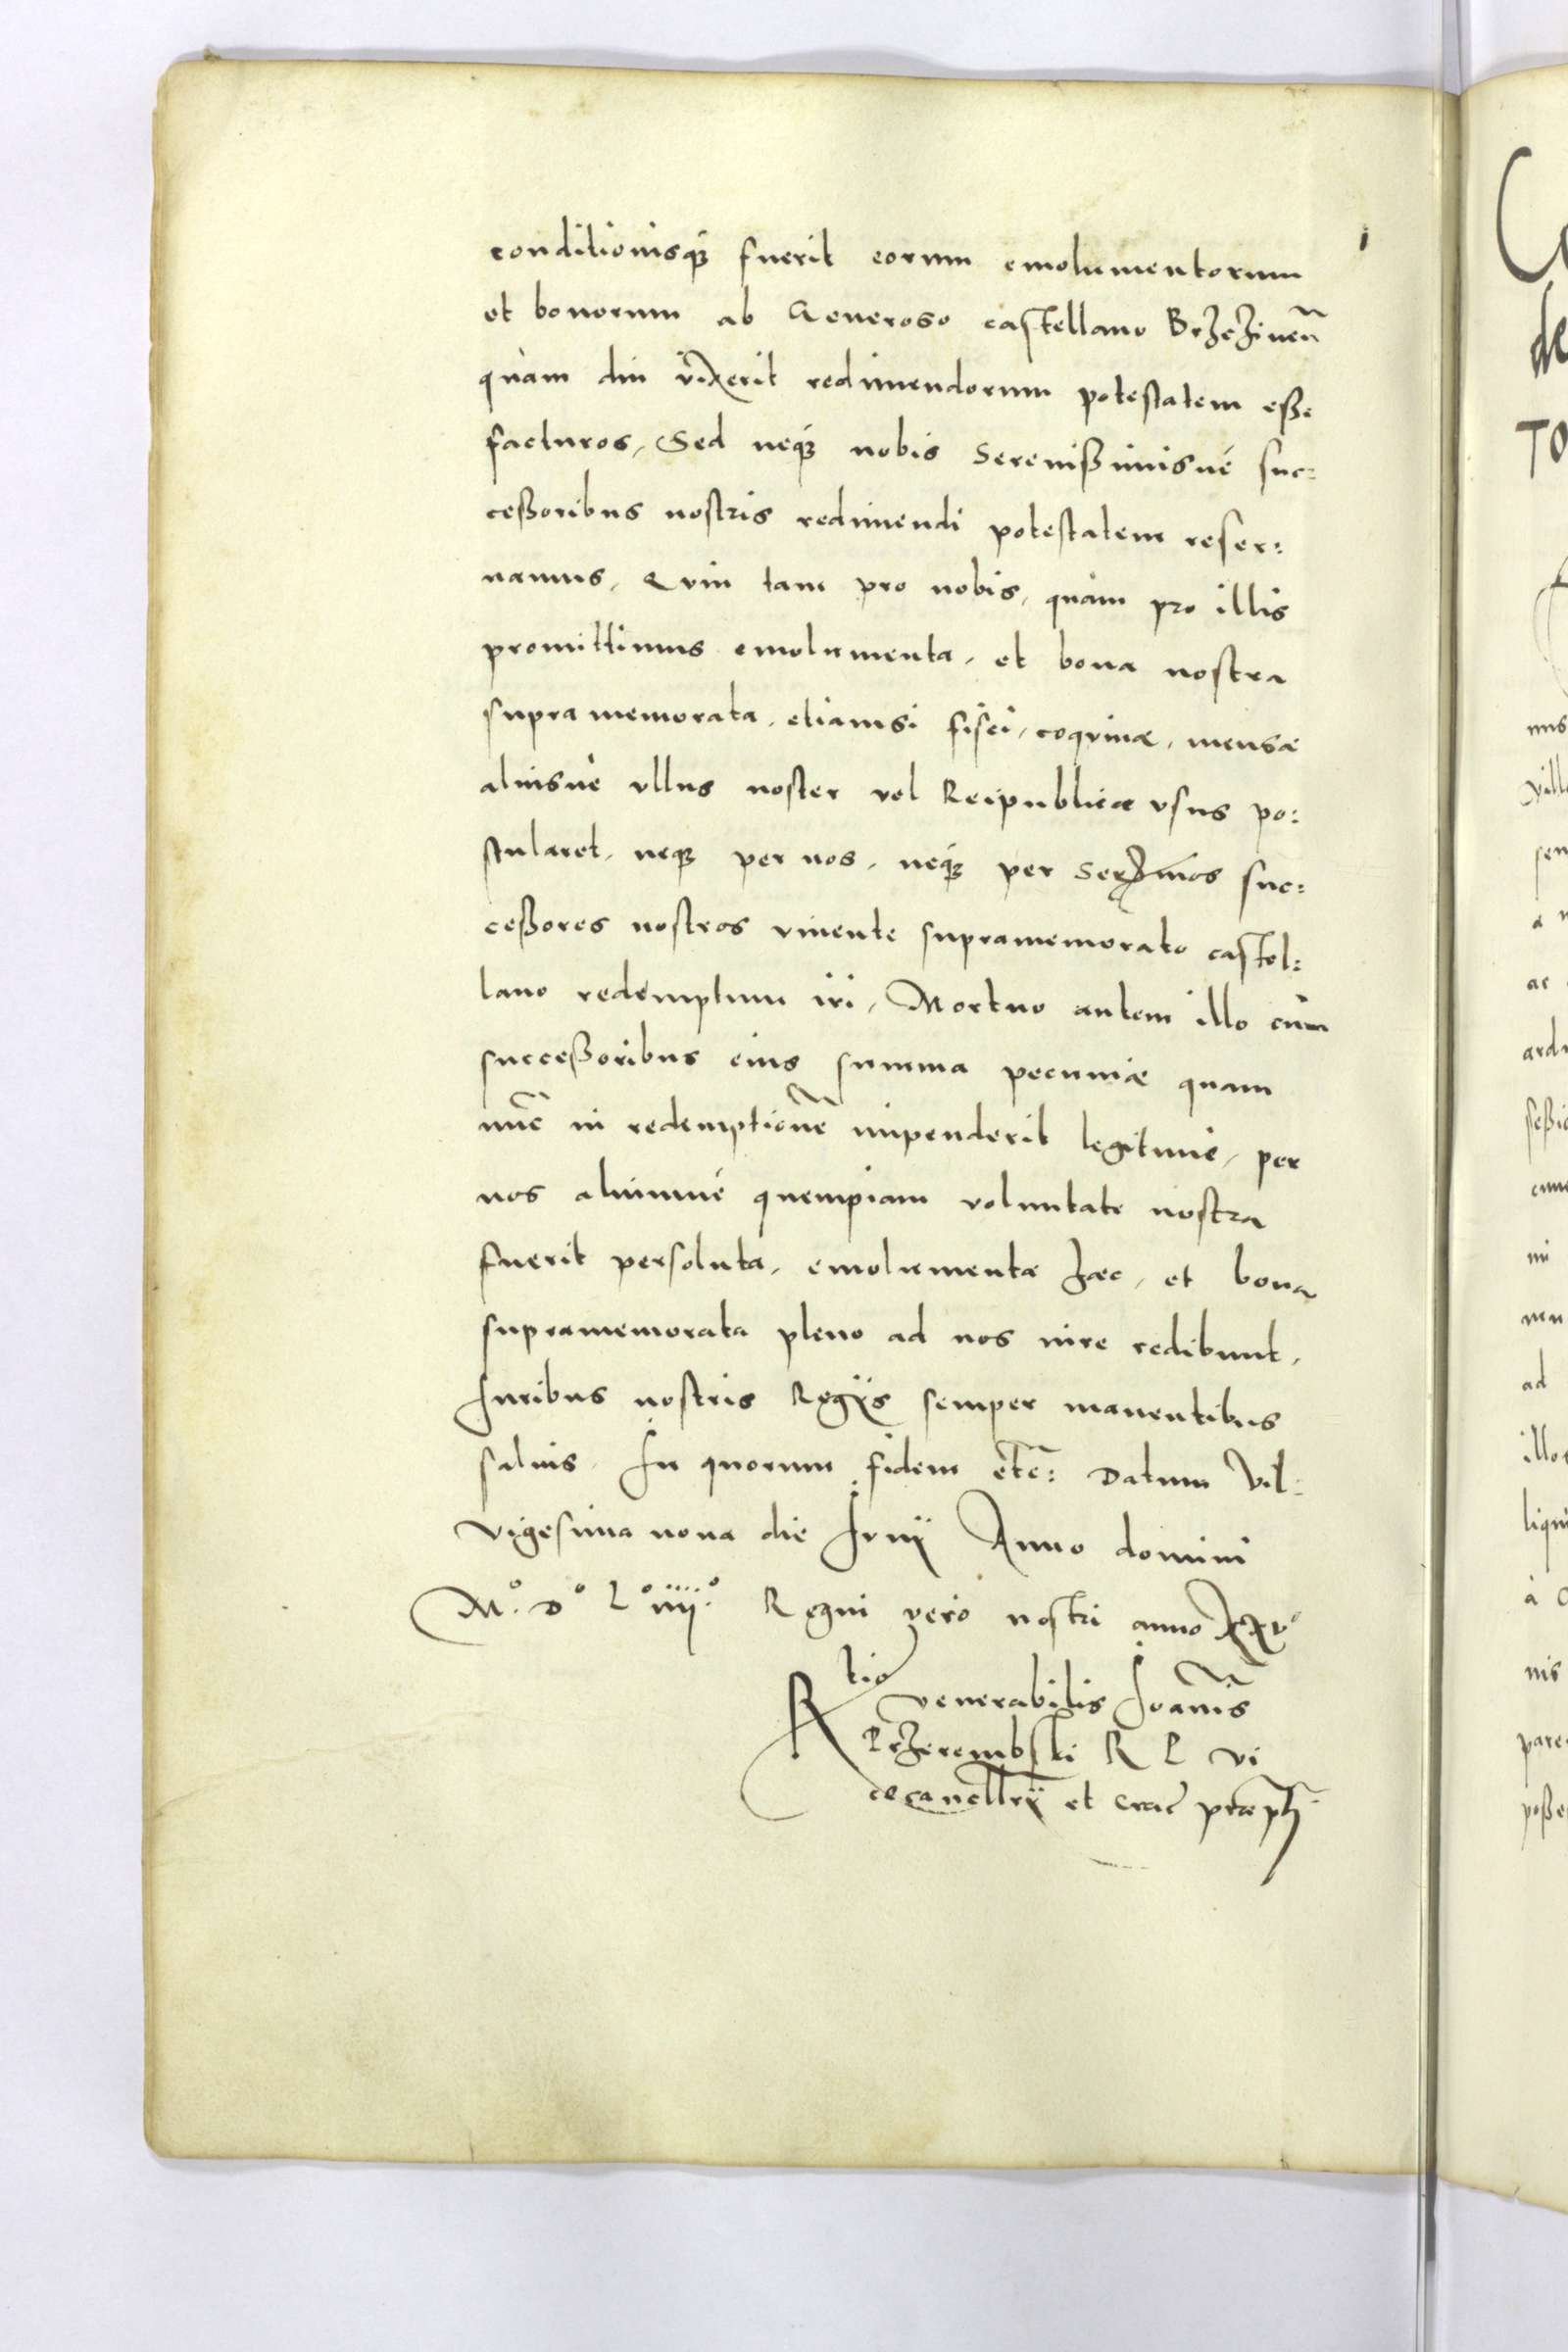 conditionisq3 fuerit eorum emolumentorum
et bonorum ab Generoso castellano Brzezineñ
quàm diu vixerit redimendorum potestatem esse
facturos, Sed neq3 nobis Serenissimisué suc:
cessoribus nostris redimendi potestatem reser:
uamus, Quin tam pro nobis, quàm pro illis
promittimus emolumenta, et bona nostra
supra memorata, etiamsi fisci, coquinæ, mensæ
aliusuè vllus noster vel Reipublicæ vsus po:
stularet, neq3 per nos, neq3 per Serͫmos suc:
cessores nostros viuente supramemorato castel:
lano redemptum iri, Mortuo autem illo cùm
successoribus eius summa pecuniæ quam
nuc̃ in redemptionẽ impenderit legitimè, per
nos aliumué quempiam voluntate nostra
fuerit persoluta, emolumenta hæc, et bona
supramemorata pleno ad nos iure redibunt,
Iuribus nostris Regÿs semper manentibus
saluis. In quorum fidem etc̃: Datum Vil:
vigesima nona die Iunÿ Anno domini
M.° D° L° iiÿ.° Regni verò nostri anno XXV°
Rtio venerabilis Ioañis
Przerembski R P vi
cecancellrÿ et Crac̃ præpti